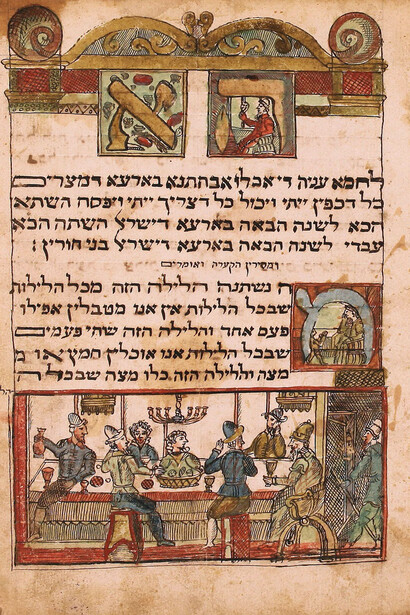 הא
לחמא עניה די אכלו אבהתנא בארעא דמצרים
כל דכפין ייתי ויכול כל דצריך ייתי ויפסח השתא
הכא לשנה הבאה בארעא דישרﭏ השתה הכא
עבדי לשנה הבאה בארעא דישרﭏ בני חורין :
ומסירין הקערה ואומרים
מה נשתנה הלילה הזה מכל הלילות
שבכל הלילות אין אנו מטבלין אפילו
פעם אחד והלילה הזה שתי פעמים
שבכל הלילות אנו אוכלין חמץ או מ
מצה והלילה הזה כלו מצה שבכל ה